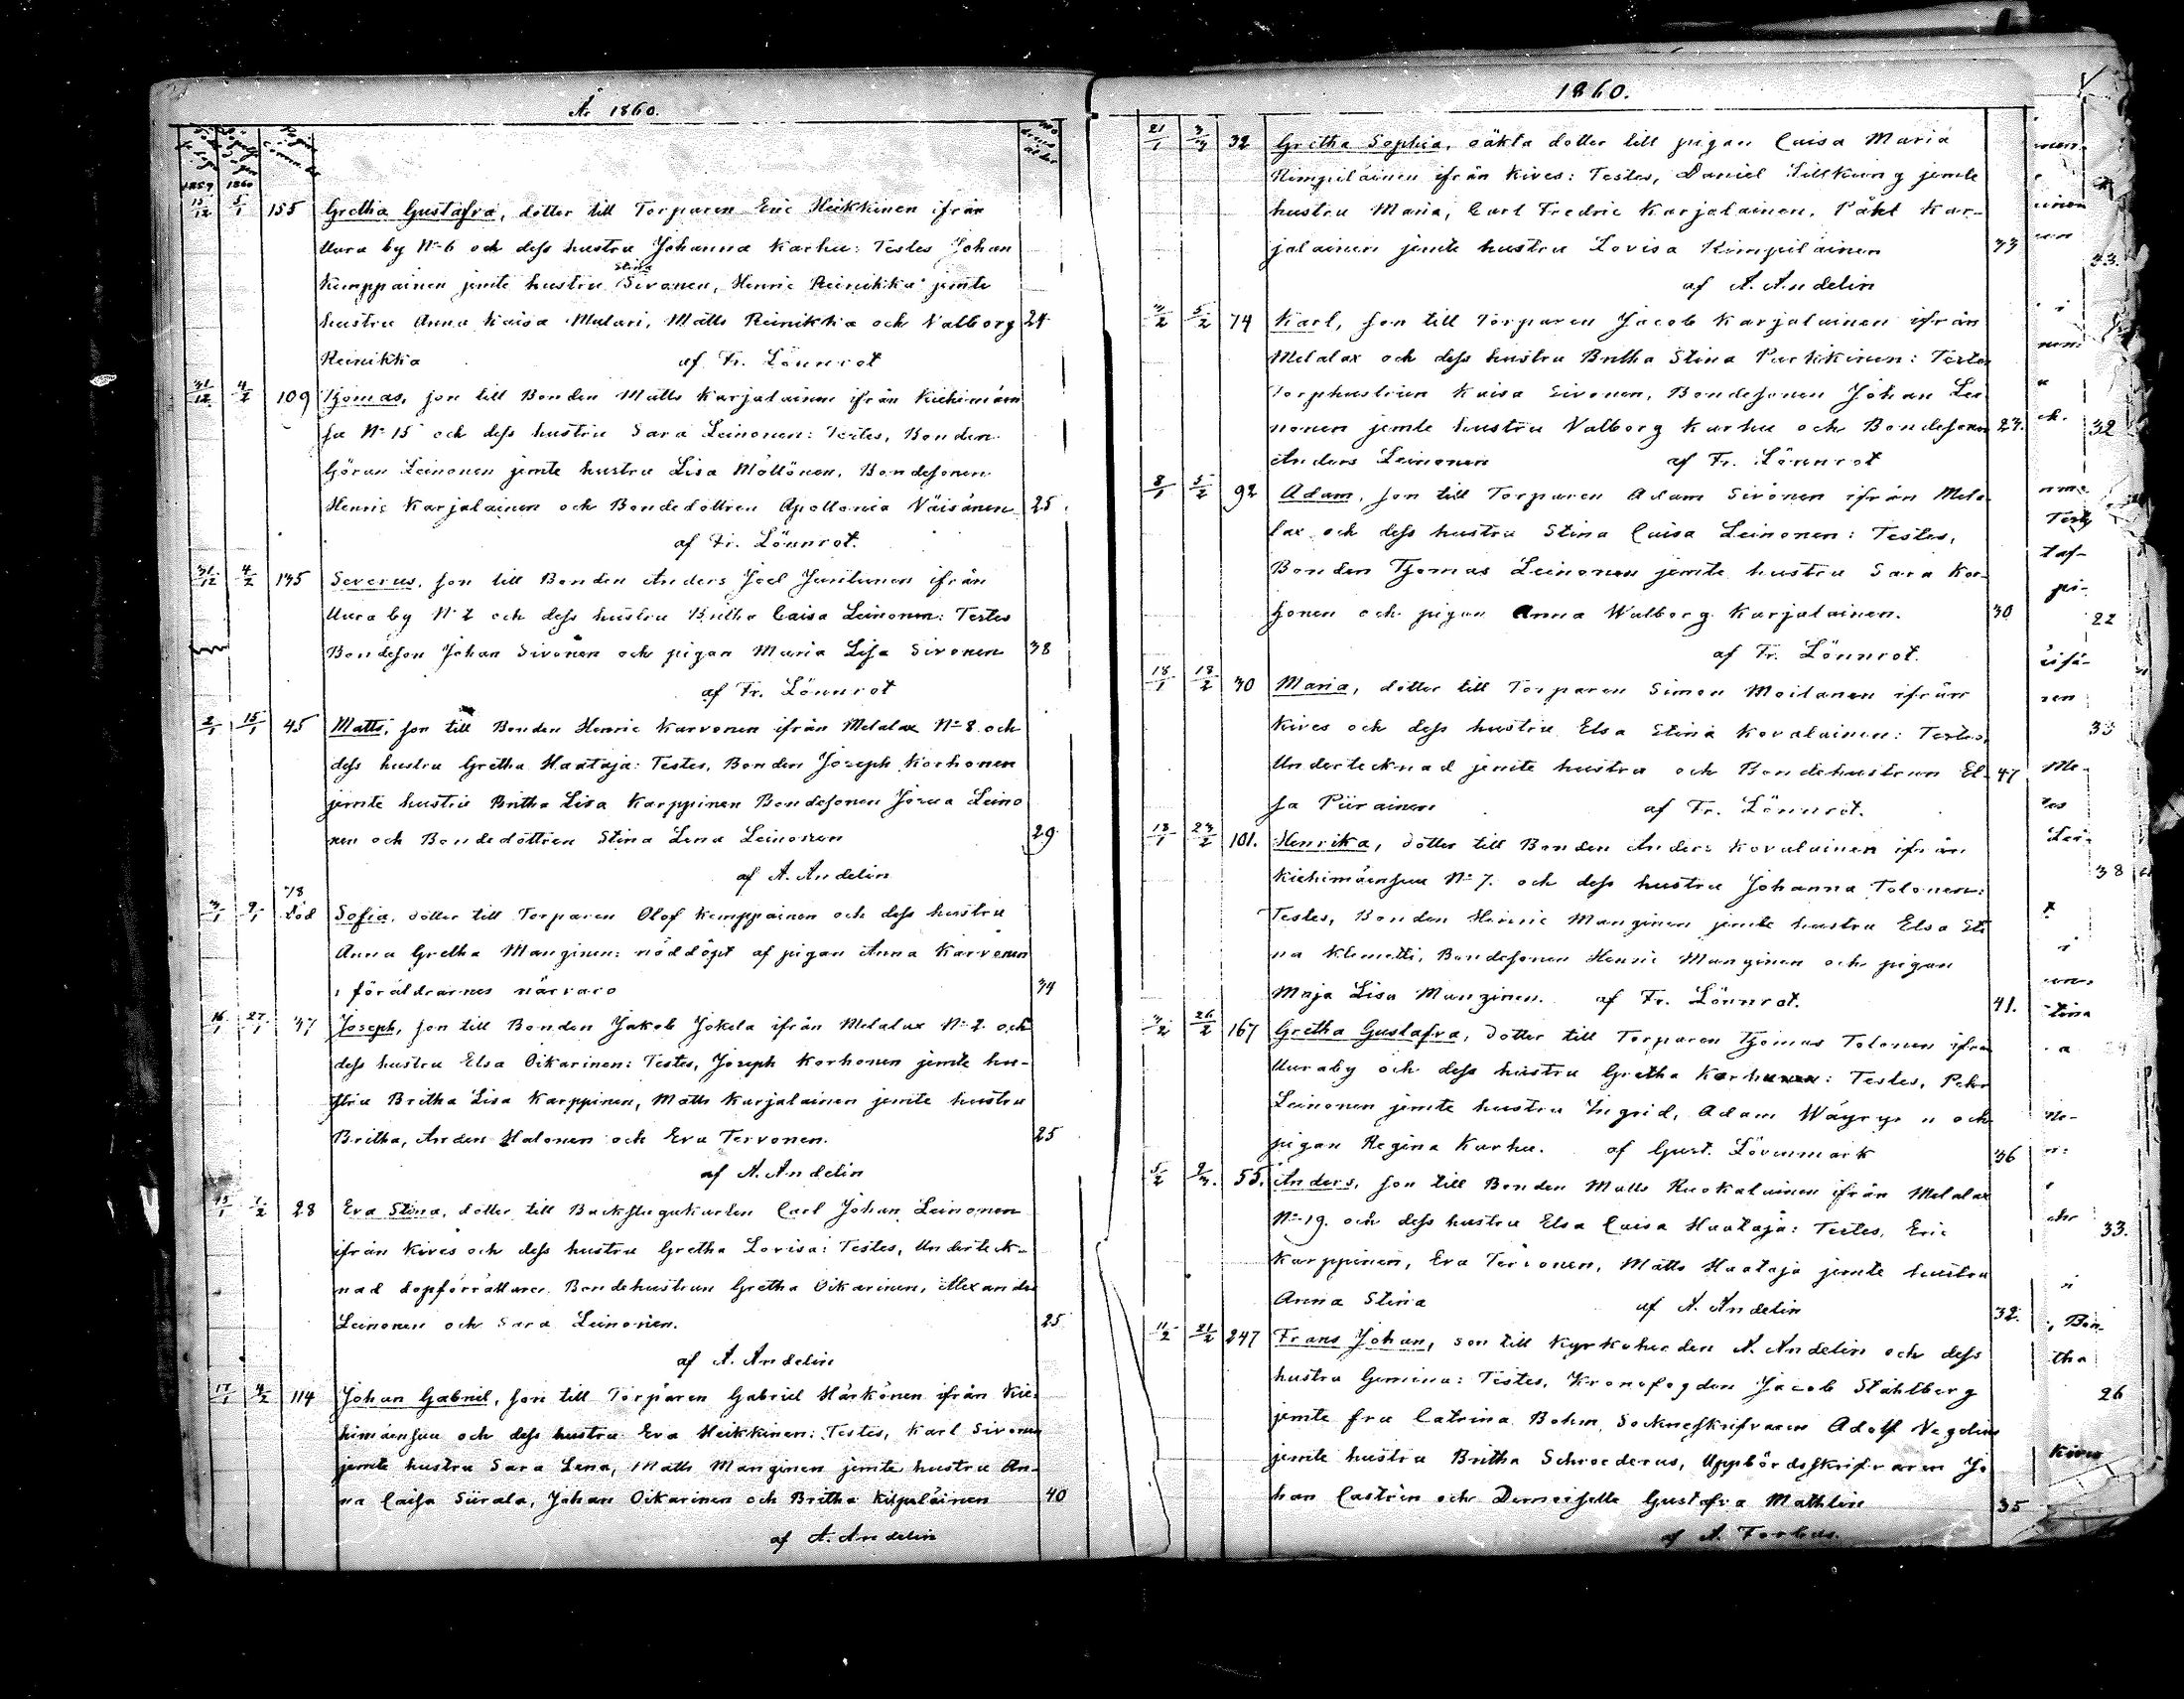 År 1860.
1859 1860
15/12 5/1 155 Gretha Gustafva, dotter till Torparen Eric Heikkinen ifrån
Uura by No 6 och dess hustru Johanna Karhu: Testes Johan
Stina
Kemppainen jemte hustru Sivonen, Henric Reinikka jemte
hustru Anna Kaisa Mulari, Matts Reinikka och Valborg 24
Reinikka af Fr. Lönnrot
31/12 4/2 109 Thomas, son till Bonden Matts Karjalainen ifrån Kiehimäen
su No 15 och dess hustru Sara Leinonen: Testes, Bonden
Göran Leinonen jemte hustru Lisa Möttönen, Bondesonen
Henric Karjalainen och Bondedottren Apollonia Väisänen 25
af Fr. Lönnrot.
31/12 4/2 135 Severus, son till Bonden Anders Joel Juntunen ifrån
Uura by No 2 och dess hustru Britha Caisa Leinonen: Testes
Bondeson Johan Sivonen och pigan Maria Lisa Sivonen 38
af Fr. Lönnrot
2/1 15/1 45 Matts, son till Bonden Henric Karvonen ifrån Melalax No 8 och
dess hustru Gretha Haataja: Testes, Bonden Joseph Korhonen
jemte hustru Britha Lisa Karppinen Bondesonen Josua Leino
nen och Bondedottren Stina Lena Leinonen 29
af A. Andelin
78
3/1 9/1 död Sofia, dotter till Torparen Olof Kemppainen och dess hustru
Anna Gretha Manginen: nöddöpt af pigan Anna Karvonen
i föräldrarnes närvaro 34
16/1 27/1 37 Joseph, son till Bonden Jakob Jokela ifrån Melalax No 2. och
dess hustru Elsa Oikarinen: Testes, Joseph Korhonen jemte hu-
stru Britha Lisa Karppinen, Matts Karjalainen jemte hustru
Britha, Anders Halonen och Eva Tervonen. 25
af A. Andelin
15/1 1/2 28 Eva Stina, dotter till Backstugukarlen Carl Johan Leinonen
ifrån Kives och dess hustru Gretha Lovisa: Testes, Underteck-
nad dopförrättare, Bondehustrun Gretha Oikarinen, Alexander
Leinonen och Sara Leinonen. 25
af A. Andelin
17/1 4/2 114 Johan Gabriel, son till Torparen Gabriel Härkönen ifrån Kie-
himäensuu och dess hustru Eva Heikkinen: Testes, Karl Sivonen
jemte hustru Sara Lena, Matts Manginen jemte hustru An-
na Caisa Siirala, Johan Oikarinen och Britha Kilpeläinen 40
af A. Andelin
1860.
21/1 3/3 32 Gretha Sophia, oäkta dotter till pigan Caisa Maria
Kimpiläinen ifrån Kives: Testes, Daniel Tillkung jemte
hustru Maria, Carl Fredric Karjalainen, Påhl Kar-
jalainen jemte hustru Lovisa Kimpiläinen 33
af A. Andelin
5/2 74 Karl, son till Torparen Jacob Karjalainen ifrån
Melalax och dess hustru Britha Stina Partikinen: Testes
Torphustrun Kaisa Sivonen, Bondesonen Johan Lei
nonen jemte hustru Valborg Karhu och Bondesonen 27.
Anders Leinonen af Fr. Lönnrot
8/1 5/2 92 Adam, son till Torparen Adam Sivonen ifrån Mela
lax och dess hustru Stina Caisa Leinonen: Testes,
Bonden Thomas Leinonen jemte hustru Sara Kor-
honen och pigan Anna Walborg Karjalainen. 30
af Fr. Lönnrot.
18/1 18/2 30 Maria, dotter till Torparen Simon Moilanen ifrån
Kives och dess hustru Elsa Stina Kovalainen: Testes,
Undertecknad jemte hustru och Bondehustrun El- 47
sa Piirainen af Fr. Lönnrot.
13/1 23/2 101. Henrika, dotter till Bonden Anders Kovalainen ifrån
Kiehimäensuu No 7. och dess hustru Johanna Tolonen:
Testes, Bonden Henric Manginen jemte hustru Elsa Sti
na Klemetti, Bondesonen Henric Manginen och pigan
Maja Lisa Manginen. af Fr. Lönnrot. 41.
3/2 26/2 167 Gretha Gustafva, dotter till Torparen Thomas Tolonen ifrån
Uuraby och dess hustru Gretha Karhunen: Testes, Pehr
Leinonen jemte hustru Ingrid, Adam Wäyrynen och
pigan Regina Karhu. af Gust. Lövenmark 36
5/2 9/3. 55. Anders, son till Bonden Matts Ruokalainen ifrån Melalax
No 19. och dess hustru Elsa Caisa Haataja: Testes, Eric
Karppinen, Eva Tervonen, Matts Haataja jemte hustru
Anna Stina af A. Andelin 32.
11/2 21/2 247 Frans Johan, son till Kyrkoherden A. Andelin och dess
hustru Gemina: Testes, Kronofogden Jacob Ståhlberg
jemte fru Catrina Bohm, Sockneskrifvaren Adolf Vegelius
jemte hustru Britha Schroederus, Uppbördsskrifvaren Jo
han Castrén och Demoiselle Gustafva Mathlin 35
af A. Forbus.
33.
32
22
38
33.
26
Kives